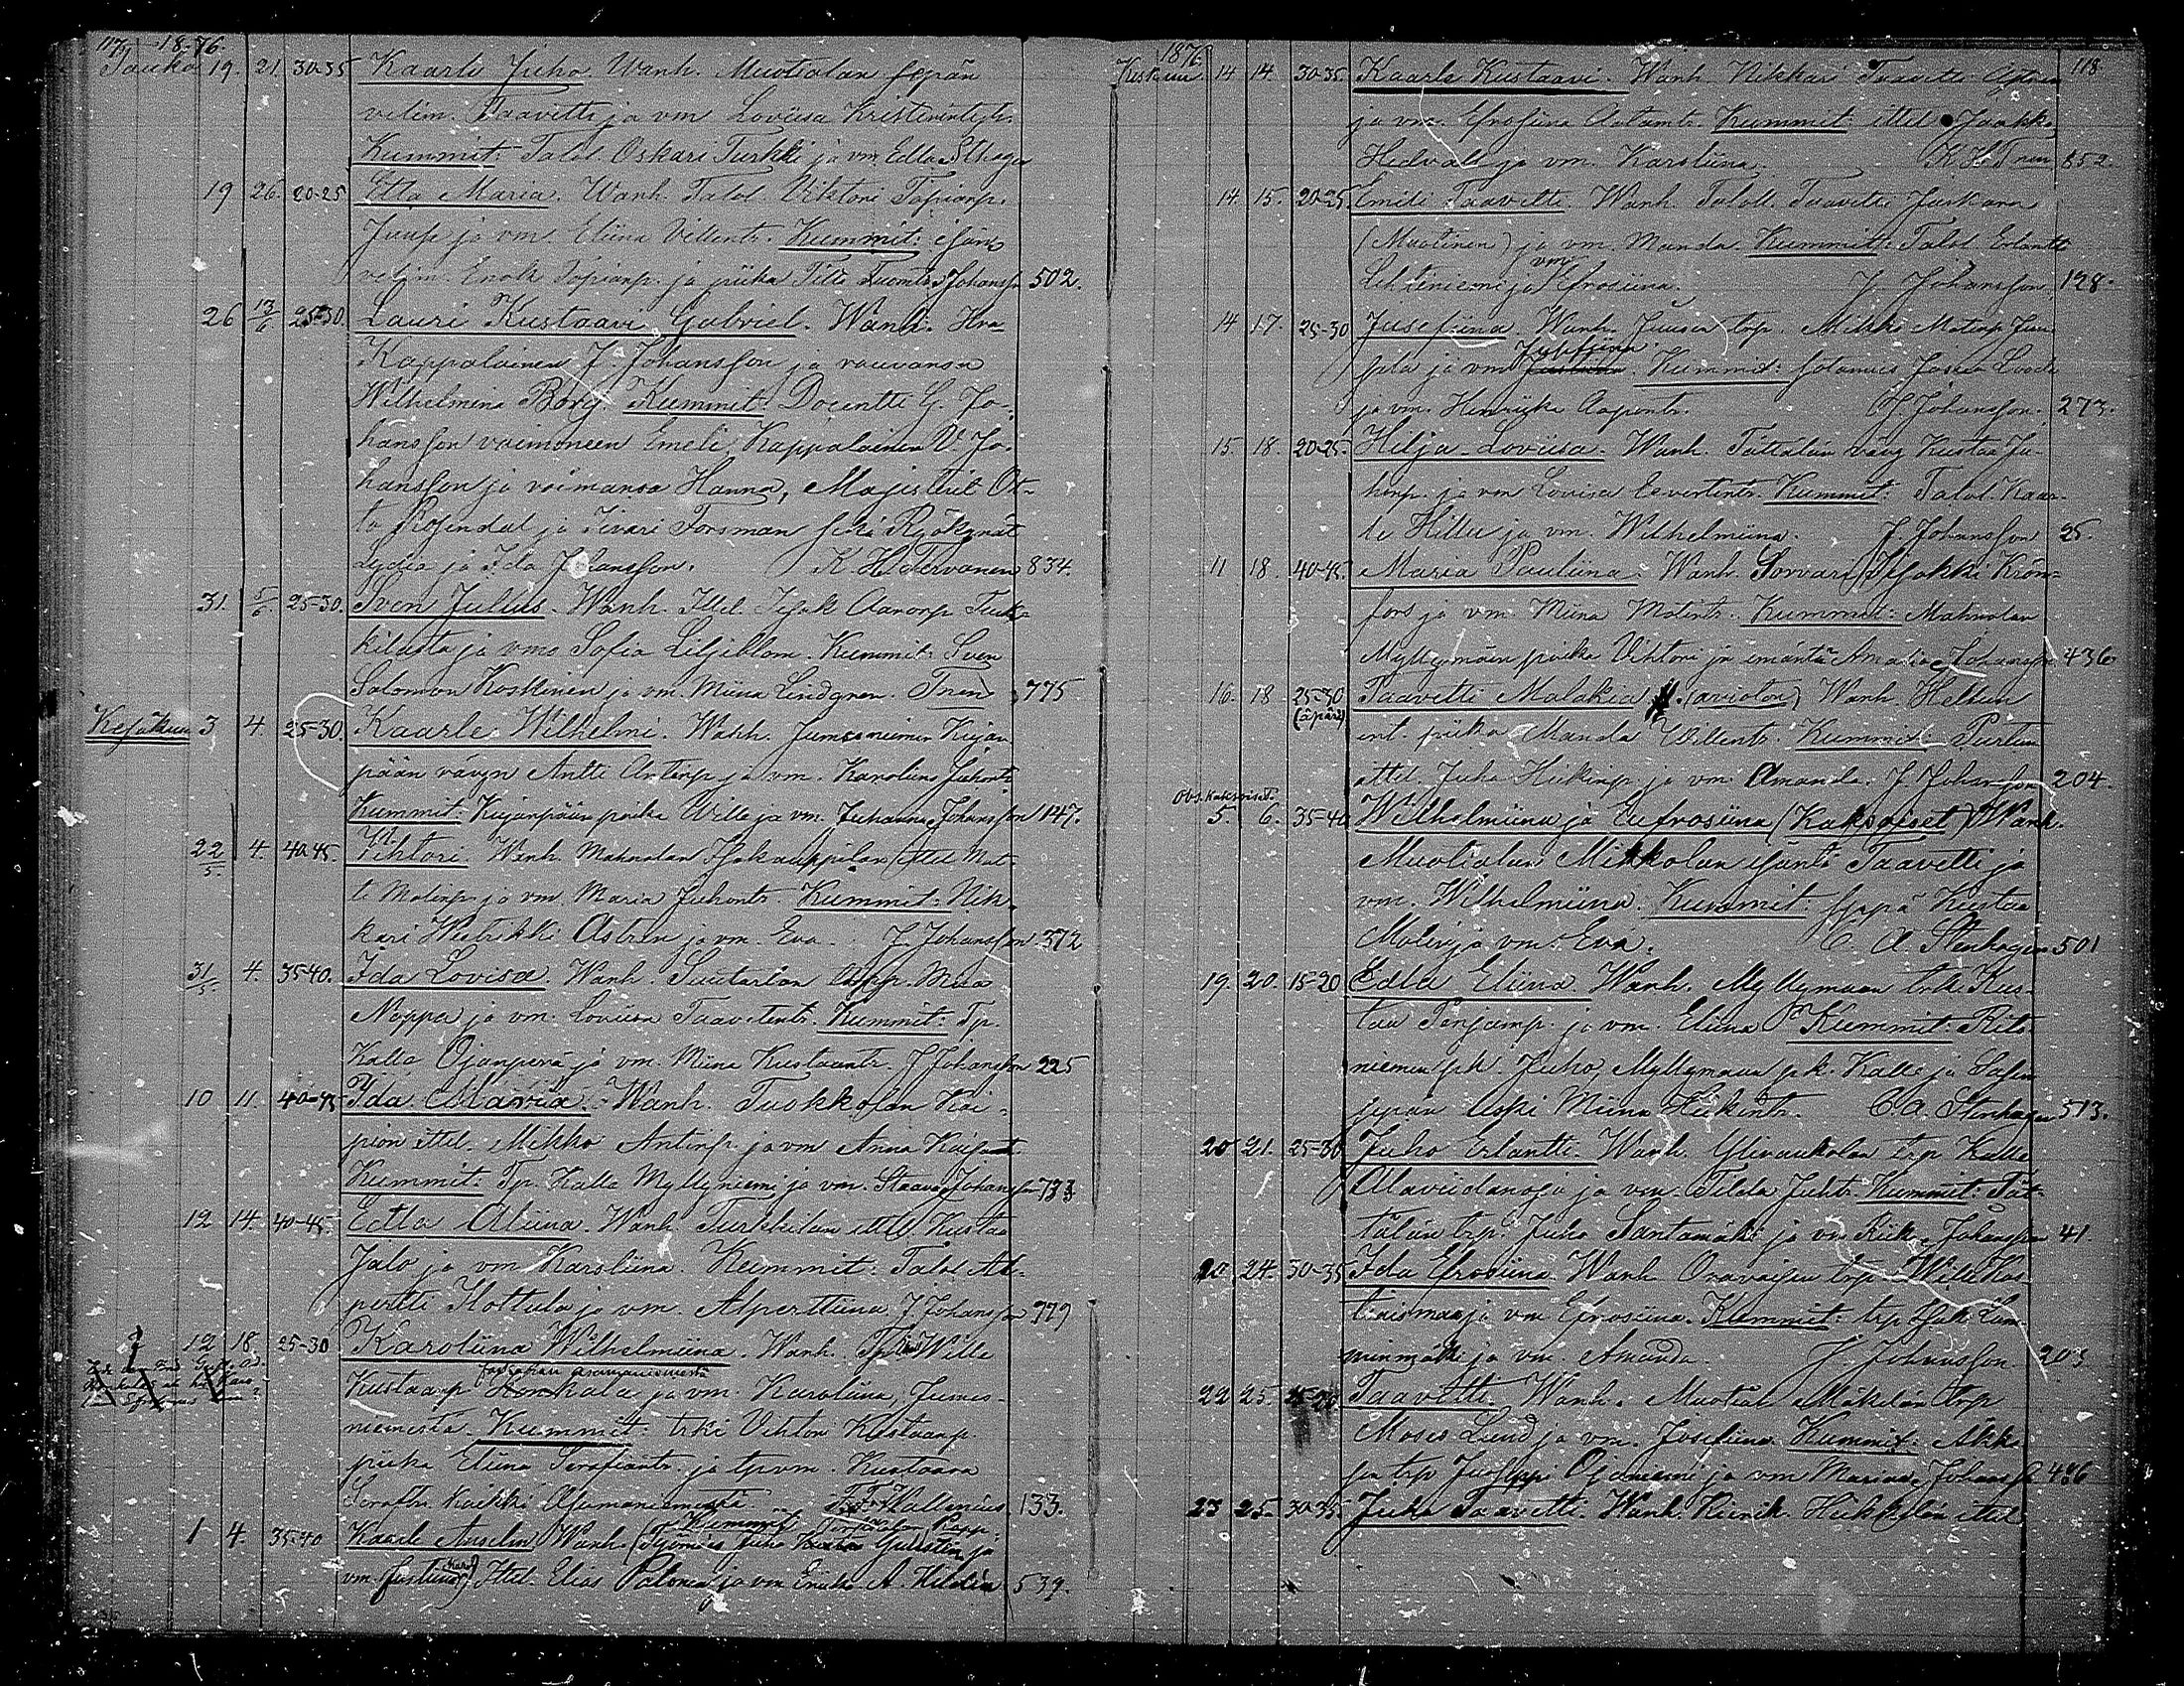 117 1876.
Touko 19. 21. 30-35 Kaarle Juho. Wanh. Muotialan sepän
velim. Taavetti ja vm Loviisa Kristerintr.
Kummit: Talol. Oskari Turkki ja vm. Edla
19 26. 20-25 Etla Maria. Wanh. Talol. Viktori Topianp.
Juup ja vm. Eliina Villentr. Kummit: isän
velim. Enok Topianp. ja piika Tilta Tuomtr. Johansson 502.
26 13/6 25-30 Lauri Kustaavi Gabriel. Wanh. Hra
Kappalainen J. Johansson ja rouvansa
Wilhelmina Borg. Kummit: Docentti G. Jo-
hansson vaimoneen Emeli, Kappalainen V. Jo-
hansson ja vaimonsa Hanna, Majisterit Ot-
to Rosendal ja Iivari Forsman sekä Ryökynät
Lydia ja Ida Johansson. K H Tervanen 834.
31. 5/6. 25-30. Sven Julius. Wanh. Ittel. Isak Aaronp. Turk-
kilasta ja vmo Sofia Liljeblom. Kummit: Sven
Salomon Koskinen ja vm. Miina Lindgren. Tnen 775
Kesäkuu 3 4. 25-30. Kaarle Wilhelmi. Wanh. Jumesniemen Kujan-
pään vävyn Antti Antinp. ja vm. Karoliina Juhontr.
Kummit: Kujanpään poika Wille ja vm. Juhanna Johansson 147.
22/5. 4. 40-45 Vihtori. Wanh. Mahnalan Isokauppilan ittel Mat-
ti Matinp. ja vm. Maria Juhontr. Kummit: Nik-
kari Hietrikki Astren ja vm. Eva. J. Johansson 372
31/5. 4. 35-40. Ida Lovisa. Wanh. Suutarlan
Noppa ja vm. Loviisa Taavetintr. Kummit: Tp.
Kalle Ojanperä ja vm. Miina Kustaantr. J Johansson 225
10 11. 40-45 Ida Maria. Wanh. Tuokkolan Kai-
pion ittel. Mikko Antinp. ja vm Anna
Kummit: Tp. Kalla Myllyniemi ja vm. Staava Johansson 733
12 14. 40-45. Edla Aliina. Wanh. Turkkilan ittel Kustaa
Jalo ja vm Karoliina. Kummit: Talol. Al-
pertti Kottula ja vm. Alperttiina J Johansson 779
12 18. 25-30 Karoliina Wilhelmiina. Wanh. Wille
Kustaanp. Honkala ja vm. Karoliina, Jumes-
niemestä. Kummit: trki Vihtori Kustaanp.
piika Eliina Serafiantr. ja tpvm. Kustaava
Seraftr. kaikki Asumaniemestä. Hallenius. 133.
1 4. 35-40 Kaarle Anselm Wanh. Kummit
vm. Justiina Ittel. Elias Palonen ja vm Eriika A. Heleén 539.
1876 118
Kesäkuu 14 14. 30-35. Kaarle Kustaavi. Wanh. Nikkari Taavetti Astren
ja vm. Efrosiina Aatamtr. Kummit: ittel. Jaakko
Hedvall ja vm. Karoliina. K. H. Tnen 852.
14. 15. 20-25. Emili Taavetti. Wanh. Talol. Taavetti Juskara
(Muotinen) ja vm. Manda. Kummit: Talol. Erlantti
Lehtiniemi ja vm Efrosiina. J. Johansson. 128.
14 17. 25-30 Jusefiina. Wanh. Juusen trp. Mikki Matinp. Juu-
sela ja vm Jusefiina. Kummit: sotamies Joosea
ja vm. Henriika Aapontr. J. Johansson. 273.
15. 18. 20-25. Hilja Loviisa. Wanh. Tättälän vävy Kustaa Ju-
honp. ja vm Lovisa Eevertintr. Kummit: Talol. Kaar-
le Hillu ja vm. Wilhelmiina. J. Johansson 25.
11 18. 40-45. Maria Pauliina. Wanh. Sorvari Isakki Kron-
fors ja vm. Miina Matintr. Kummit: Mahnalan
Myllymäen poika Vihtori ja emäntä Amalia Johansson 436
16. 18 25-30 (äpärä) Taavetti Malakia. (avioton) Wanh.
int. piika Manda Willentr. Kummit:
ittel. Juha Heikinp. ja vm. Amanda. J. Johansson 204.
Obs. kaksoiset.
5. 6. 35-40 Wilhelmiina ja Eufrosiina (Kaksoiset) Wanh.
Muotialan Mikkolan isäntä Taavetti ja
vm. Wilhelmiina. Kummit: seppä Kustaa
Molin ja vm. Eva. C. A. Stenhagen 501
19. 20. 15-20 Edla Eliina. Wanh. Myllymaan trki Kus-
taa Penjamp. ja vm. Eliina Kummit: Rito-
niemen pk. Juho, Myllymaan pk. Kalle ja
sepän leski Miina Heikintr. C. A. Stenhagen 513.
20 21. 25-30 Juho Erlantti. Wanh. trp. Kalle
ja vm. Tilda Juhtr. Kummit: Tät-
tälän trp. Juha Santamäki ja vm Riik Johansson 41.
20. 24. 30-35 Ida Efrosiina. Wanh. Oravaisen trp. Wille Kos-
tiaismaa ja vm Efrosiina. Kummit: trp. Isak Lam-
minmäki ja vm. Amanda. J. Johansson. 205
22 25. 15-20 Taavetti. Wanh. Muotial. Mäkelän trp
Moses Lund ja vm. Josefiina. Kummit:
trp Juseppi Ojaniemi ja vm Mariaa Johansson 486
23 25. 30-35. Juha Taavetti. Wanh. Heinik. Heikkilän ittel